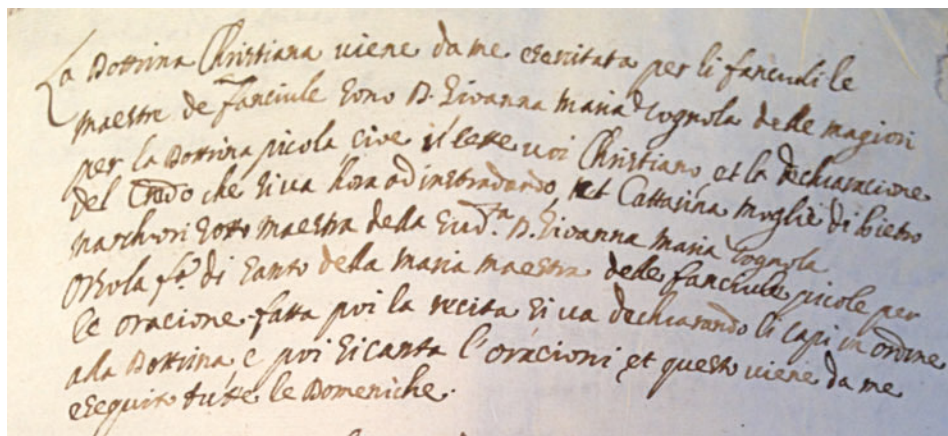 La Dottrina Christiana viene da me esercitata per li fanciuli le
maestre de fanciule sono D. Giovanna Maria Cognola delle magiori
per la Dottrina picola, cive il sette voi Christiano, et la dechiaracione
del Credo che si va hora ad instradando, et Cattarina moglie di Pietro
Marchiori sotto maestra della sud.ta D. Giovanna Maria Cognola
Orsola f.a di Santo della Maria maestra delle fanciule picole per
le oracione. fatta poi la recita si va dechiarando li capi in ordine
alla Dottrina e poi si canta l'oracioni et questo viene da me
eseguito tutte le Domeniche.